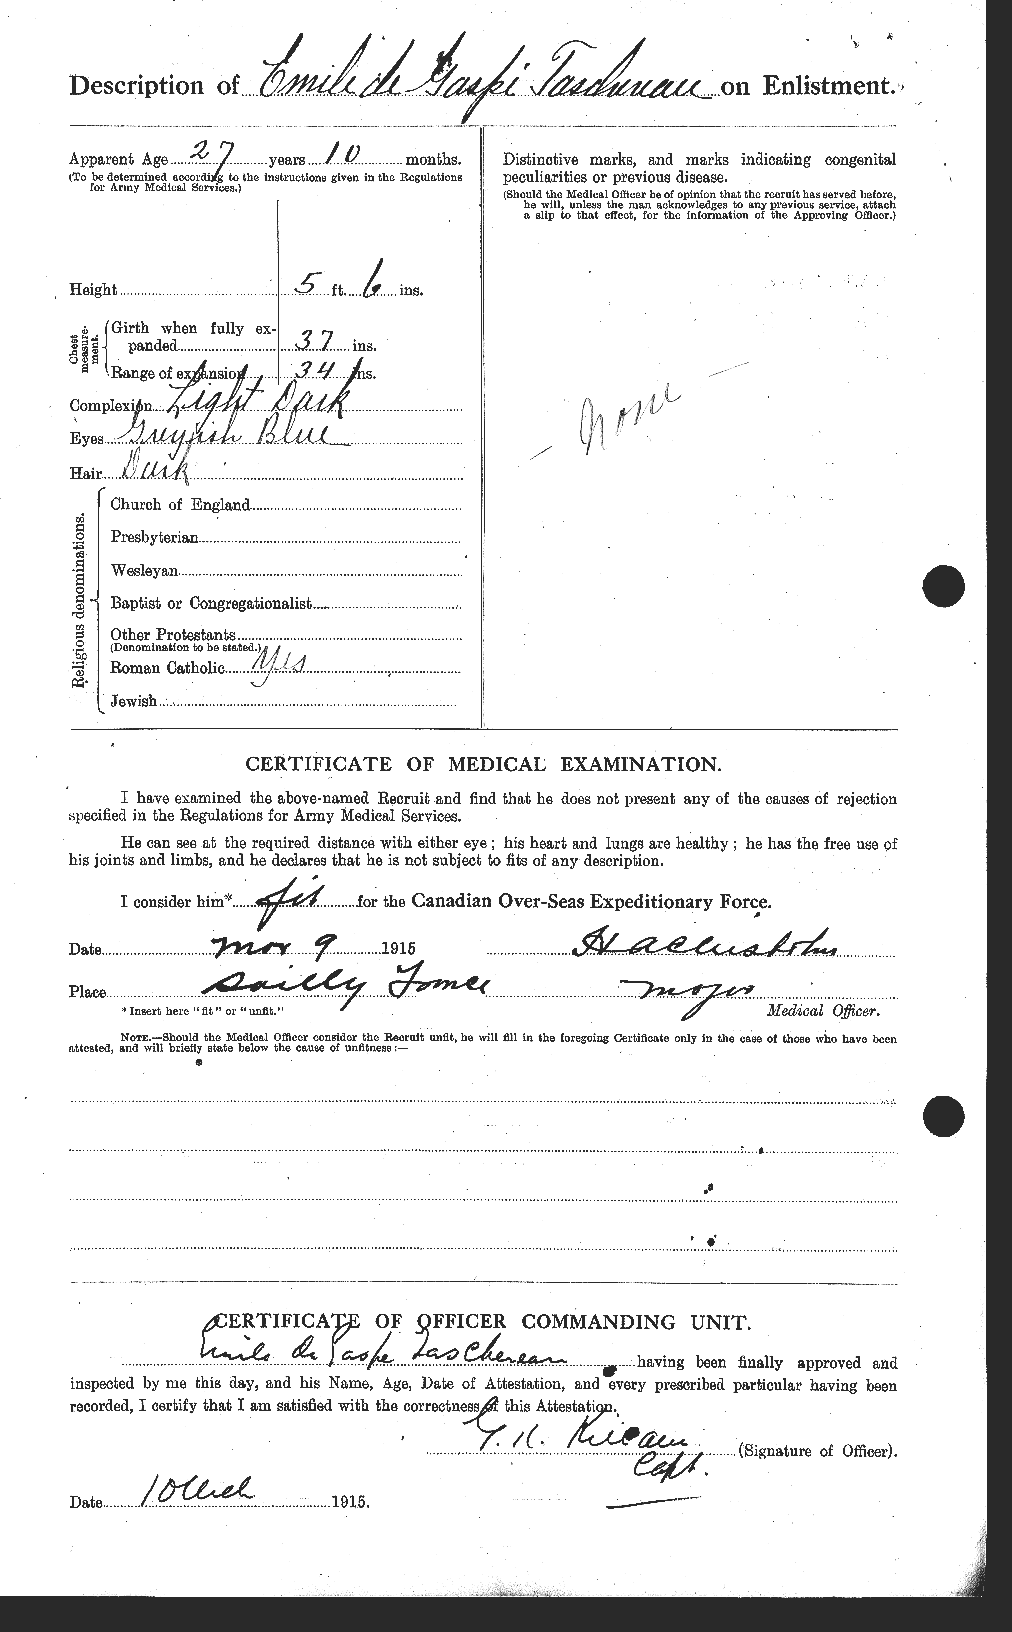 Description of Emile de Gaspé Taschereau on Enlistment.
Apparent Age 27 years 10 months.
(To be determined according to the instructions given in the Regulations
for Army Medical Services.)
Height 5 ft. 6 ins.
Chest measurement.
Girth when fully expanded 37 ins.
Range of expansion 34 ins.
Complexion Light Dark
Eyes Greyish Blue
Hair Dark
Religious denominations.
Church of England
Presbyterian
Wesleyan
Baptist or Congregationalist
Other Protestants
(Denomination to be stated.)
Roman Catholic Yes
Jewish
Distinctive marks, and marks indicating congenital
peculiarities or previous disease.
(Should the Medical Officer be of opinion that the recruit has served before,
he will, unless the man acknowledges to any previous service, attach
a slip to that effect, for the information of the Approving Officer.)
- None -
CERTIFICATE OF MEDICAL EXAMINATION.
I have examined the above-named Recruit and find that he does not present any of the causes of rejection
specified in the Regulations for Army Medical Services.
He can see at the required distance with either eye; his heart and lungs are healthy; he has the free use of
his joints and limbs, and he declares that he is not subject to fits of any description.
I consider him* fit for the Canadian Over-Seas Expeditionary Force.
Date Mar 9 1915
Place Sailly France Major
*Insert here "fit" or "unfit." Medical Officer.
NOTE.—Should the Medical Officer consider the Recruit unfit, he will fill in the foregoing Certificate only in the case of those who have been
attested, and will briefly state below the cause of unfitness:—
CERTIFICATE OF OFFICER COMMANDING UNIT.
Emile de Gaspe Taschereau having been finally approved and
inspected by me this day, and his Name, Age, Date of Attestation, and every prescribed particular having been
recorded, I certify that I am satisfied with the correctness of this Attestation.
(Signature of Officer).
Capt.
Date 10 Mch 1915.